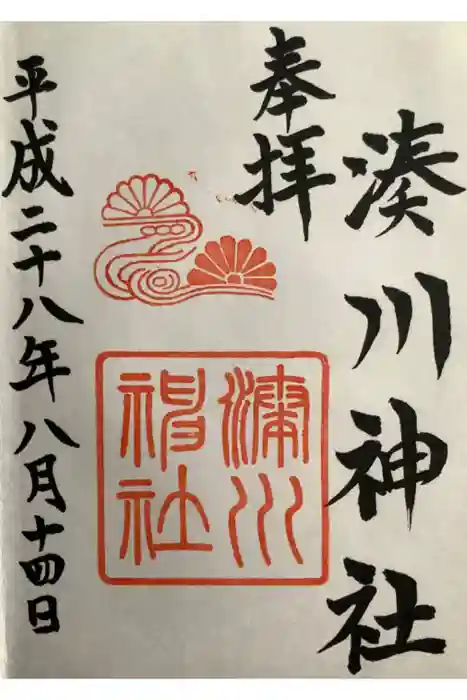 奉拝
湊川神社
湊川
神社
平成二十八年八月十四日